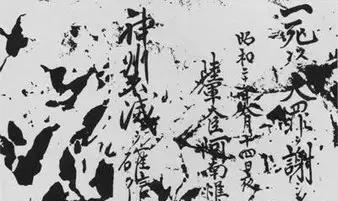 一死以テ大罪ヲ謝シ
昭和二十年八月十四日夜
陸軍大臣阿南惟
神州不滅ヲ確信